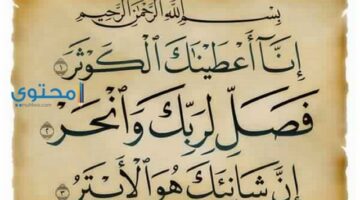 بِسْمِ اللَّهِ الرَّحْمَٰنِ الرَّحِيمِ
إِنَّا أَعْطَيْنَاكَ الْكَوْثَرَ ١
فَصَلِّ لِرَبِّكَ وَانْحَرْ ٢
إِنَّ شَانِئَكَ هُوَ الْأَبْتَرُ ٣
محتوى